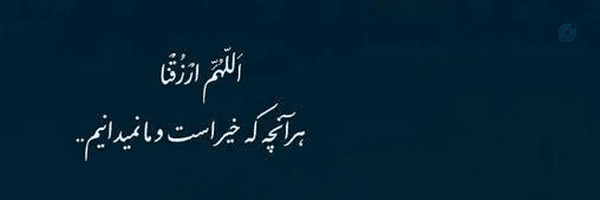 اَللّهُمَّ ارْزُقْنا
هرآنچه که خیر است و ما نمیدانیم..